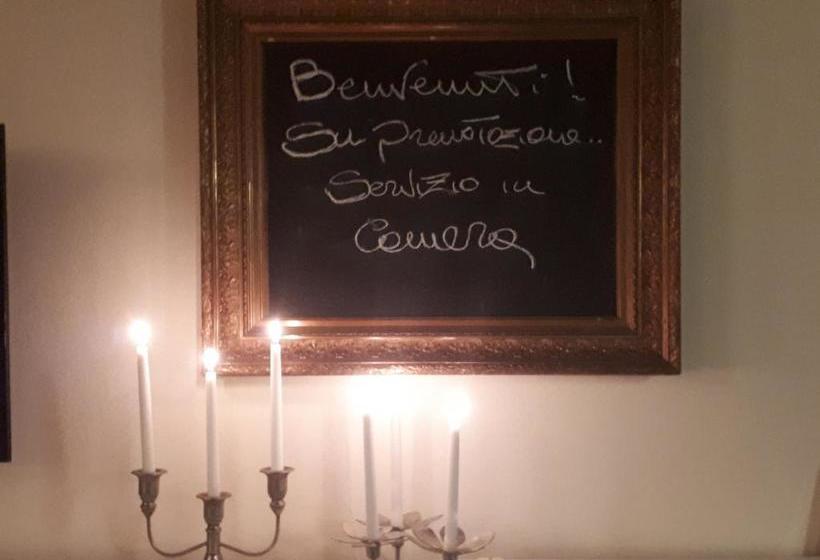 Benvenuti!
Su prenotazione..
Servizio in
Camera